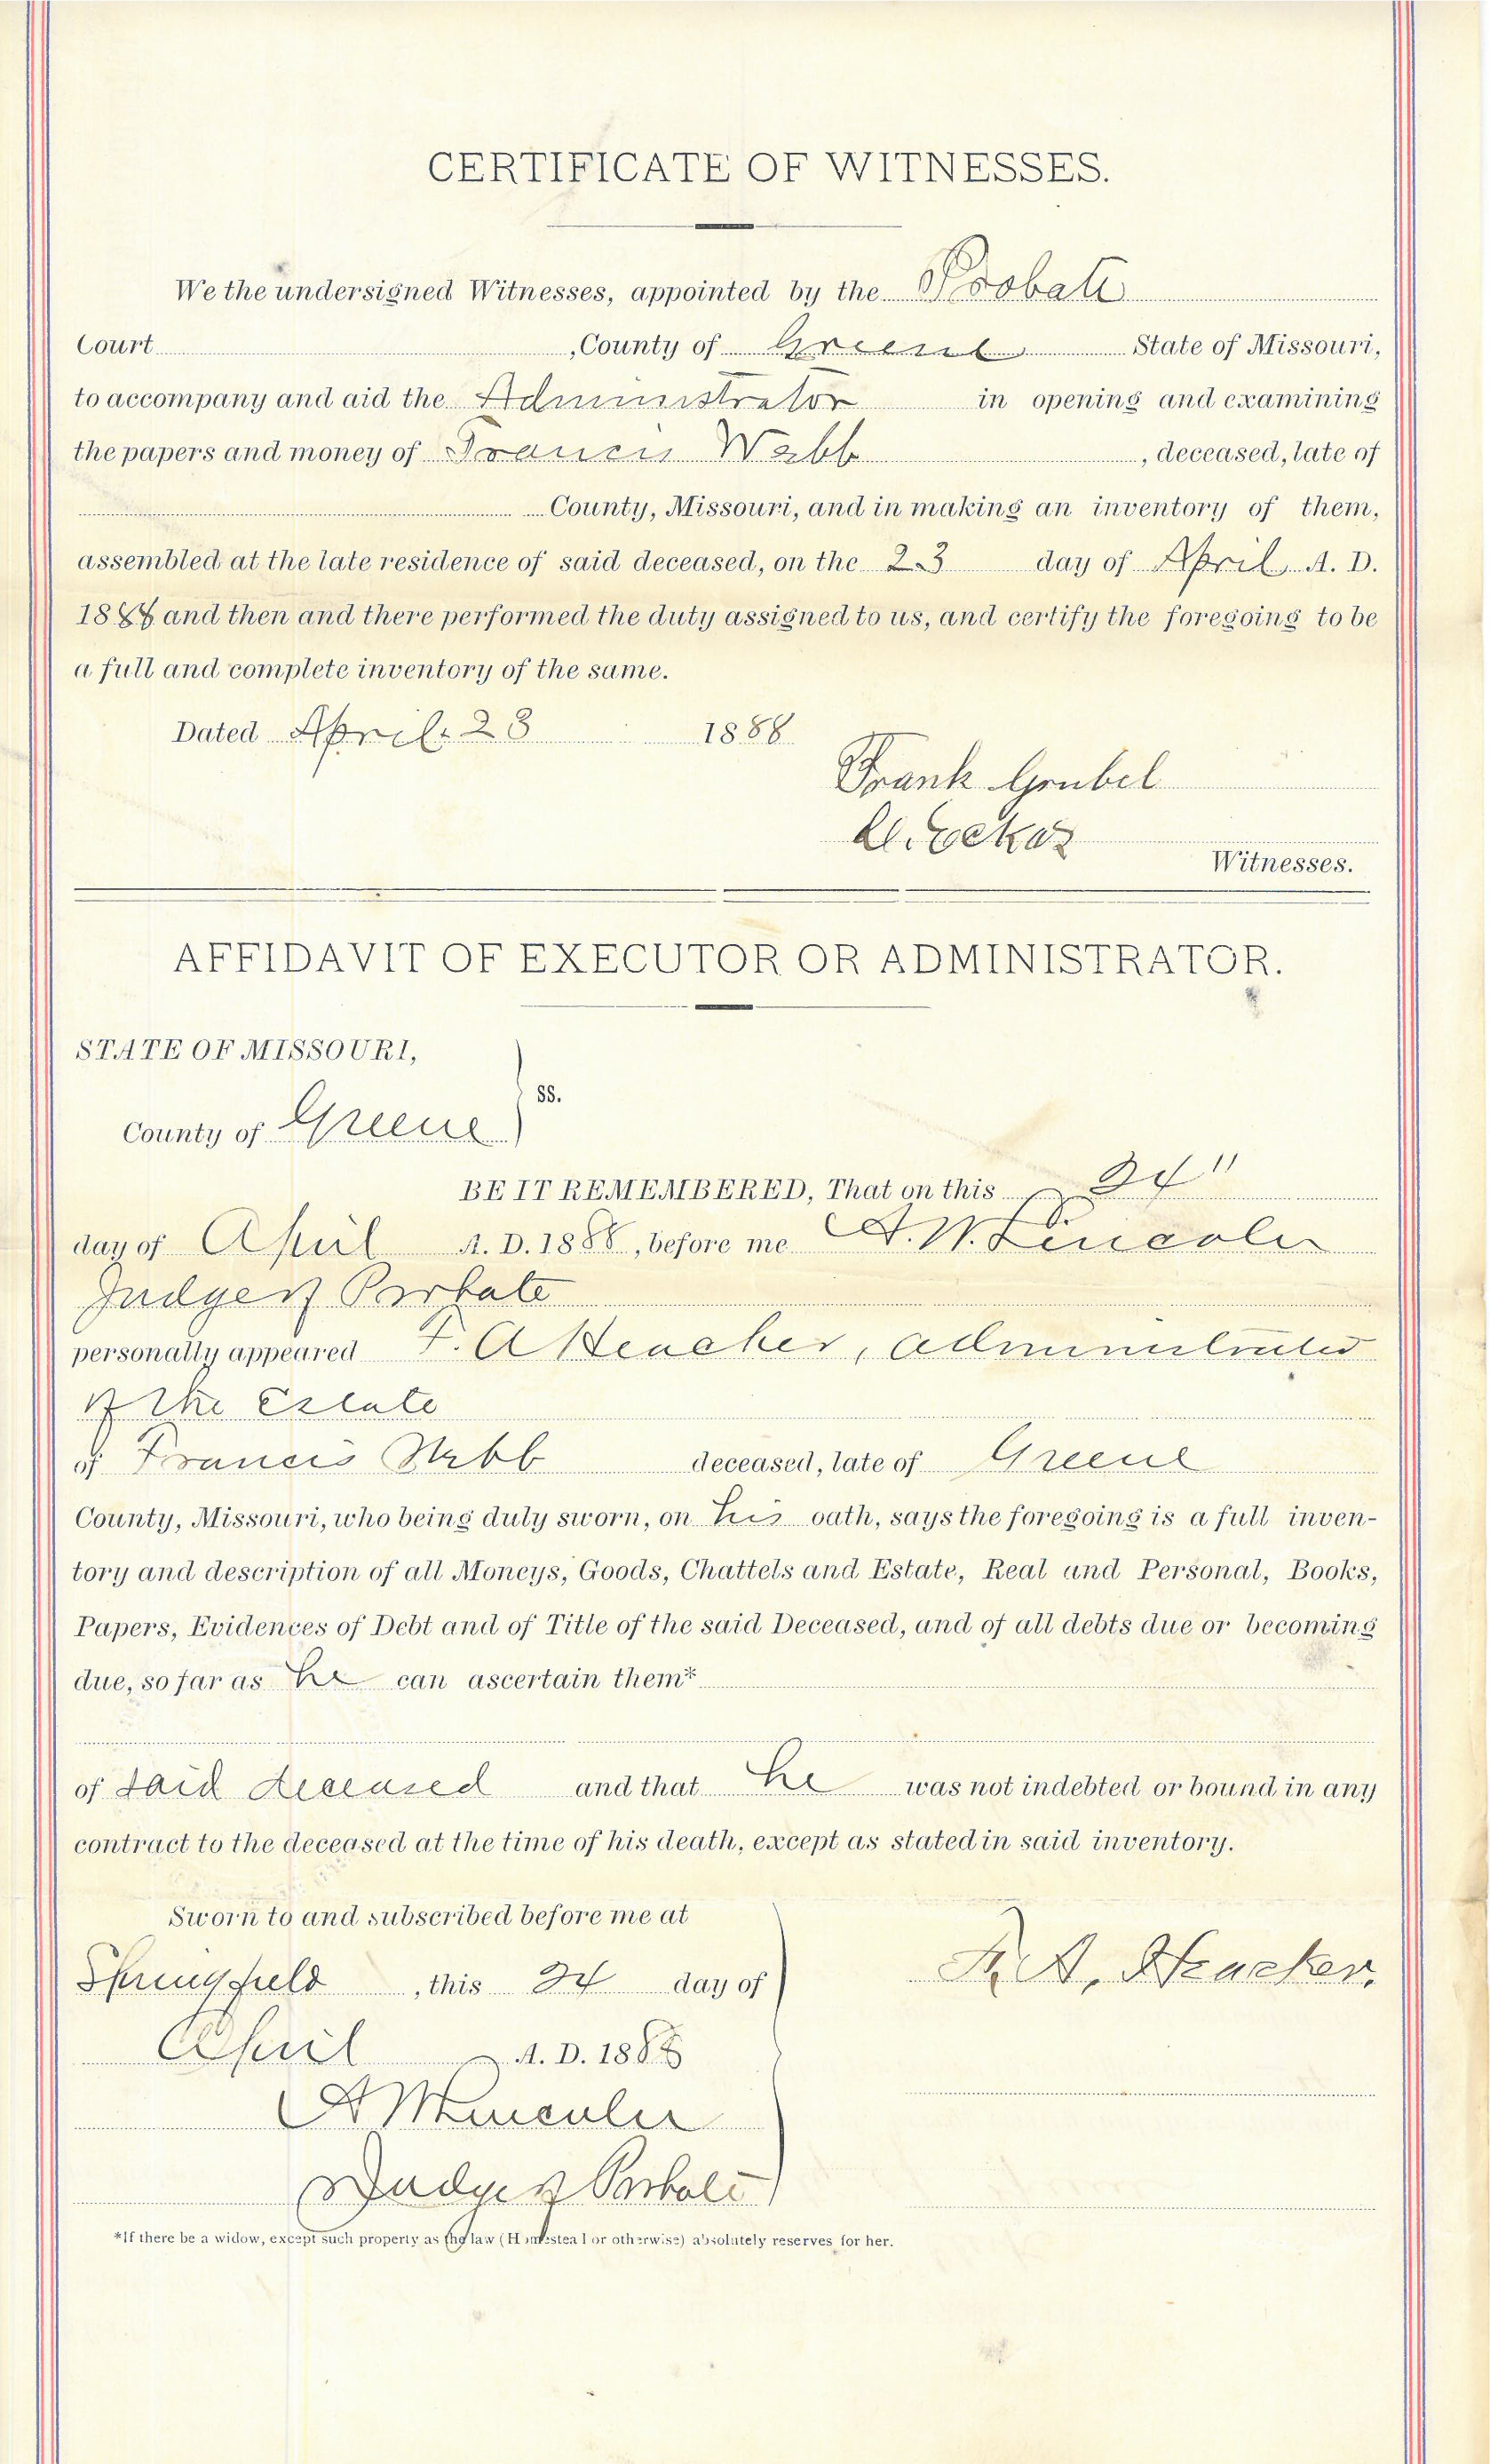 CERTIFICATE OF WITNESSES.
We the undersigned Witnesses, appointed by the Probate
Court , County of Greene State of Missouri,
to accompany and aid the Administrator in opening and examining
the papers and money of Francis Webb , deceased, late of
County, Missouri, and in making an inventory of them,
assembled at the late residence of said deceased, on the 23 day of April A. D.
1888 and then and there performed the duty assigned to us, and certify the foregoing to be
a full and complete inventory of the same.
Dated April. 23 1888
Frank Grubel
Witnesses.
AFFIDAVIT OF EXECUTOR OR ADMINISTRATOR.
STATE OF MISSOURI,
ss.
County of Greene
BE IT REMEMBERED, That on this 24"
day of April A. D. 1888, before me A. W. Lincoln
Judge of Probate
personally appeared F. A Heacker, administrator
of the Estate
of Francis Webb deceased, late of Greene
County, Missouri, who being duly sworn, on his oath, says the foregoing is a full inven-
tory and description of all Moneys, Goods, Chattels and Estate, Real and Personal, Books,
Papers, Evidences of Debt and of Title of the said Deceased, and of all debts due or becoming
due, so far as he can ascertain them*
of said deceased and that he was not indebted or bound in any
contract to the deceased at the time of his death, except as stated in said inventory.
Sworn to and subscribed before me at
Springfield , this 24 day of
F. A. Heacker.
April A. D. 1888
A W Lincoln
Judge of Probate
*If there be a widow, except such property as the law (Homestead or otherwise) absolutely reserves for her.